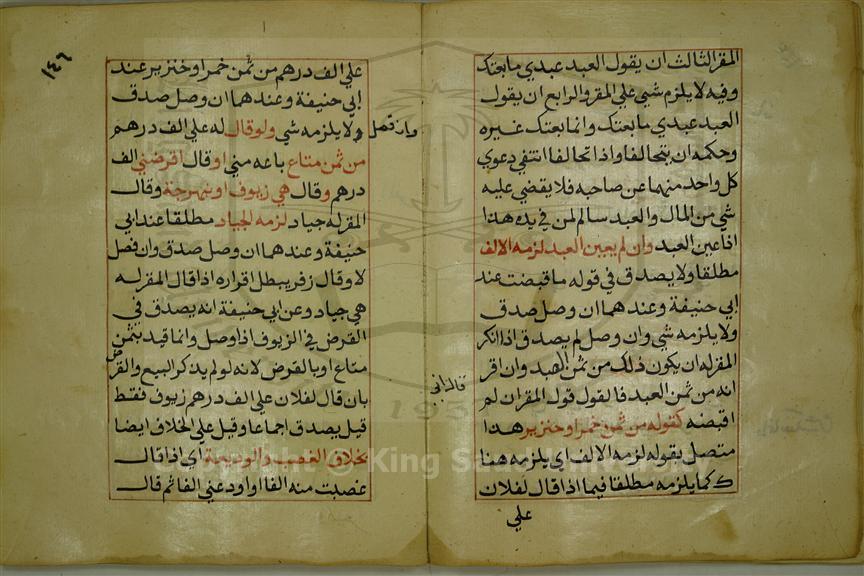 المقر الثالث ان يقول العبد عبدي ما بعتك
وفيه لا يلزم شيء علي المقر والرابع ان يقول
العبد عبدي ما بعتك وانما بعتك غيره
وحكمه ان يتحالفا واذا تحالفا انتفي دعوي
كل واحد منهما عن صاحبه فلا يقضي عليه
شي من المال والعبد سالم لمن في يده هذا
اذا عين العبد وان لم يعين العبد لزمه الالف
مطلقا ولا يصدق في قوله ما قبضت عند
ابي حنيفة وعندهما ان وصل صدق
ولا يلزمه شي وان وصل لم يصدق اذا انكر
المقر له ان يكون ذلك من ثمن العبد وان اقر
انه من ثمن العبد فالقول قول المقر ان لم
اقبضه كقوله من ثمن خمر او خنزير هذا
متصل بقوله لزمه الالف اي يلزمه هنا
كما يلزمه مطلقا فيما اذا قال لفلان
علي
١٤٦
علي الف درهم من ثمن خمر او خنزير عند
ابي حنيفة وعندهما ان وصل صدق
وان فصل
ولا يلزمه شي ولو قال له علي الف درهم
من ثمن متاع باعه مني او قال اقرضني الف
درهم وقال هي زيوف او نبهرجة وقال
المقر له جياد لزمه الجياد مطلقا عند ابي
حنيفة وعندهما ان وصل صدق وان فصل
لا وقال زفر يبطل اقراره اذا قال المقر له
هي جياد وعن ابي حنيفة انه يصدق في
القرض في الزيوف اذا وصل وانما قيد بثمن
متاع او بالقرض لانه لو لم يذكر البيع والقرض
بان قال لفلان علي الف درهم زيوف فقط
قيل يصدق اجماعا وقيل علي الخلاف ايضا
بخلاف الغصب والوديعة اي اذا قال
غصبت منه الفا او اودعني الفا ثم قال
Copyright © King Saud University
195